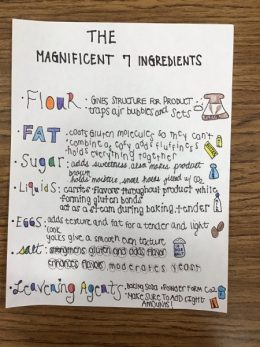 THE
MAGNIFICENT 7 INGREDIENTS
· Flour · GIVES STRUCTURE FOR PRODUCT
traps air bubbles and sets
· FAT · coats gluten molecules so they can't
combine a lot, adds fluffiness
holds everything together
· Sugar · adds sweetness, also makes product
brown
holds moisture,
· Liquids: carries flavors throughout product while
forming gluten bonds
act as a steam during baking, tender
· EGGS: adds texture and fat for a tender and light
look
yolks give a smooth even texture
· salt: strengthens gluten and adds flavor
enhances flavors moderates yeast
· Leavening Agents: · BAKING SODA + POWDER FORM CO2
· MAKE SURE TO ADD RIGHT
AMOUNTS!